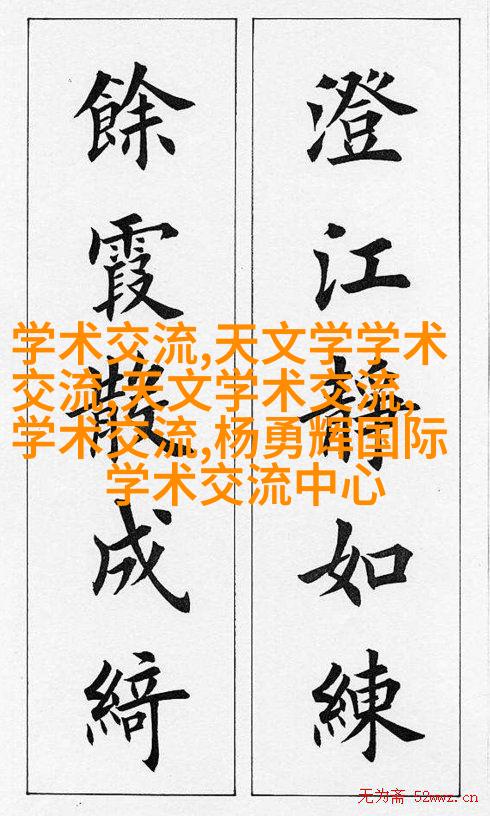 澄江靜如練
餘霞散成綺
学术交流,天文学学术
交流,天文学术交流,
学术交流,杨勇辉国际
学术交流中心
无为斋 52wwz.cn